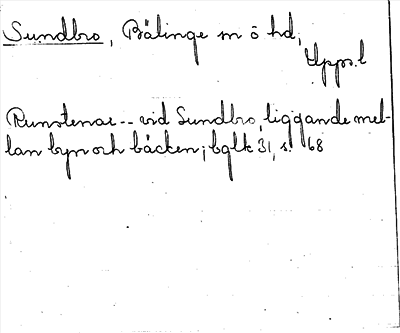 Sundbro, Bälinge sn ö hd,
Upps.l
Runstenar -- vid Sundbro, liggande mel-
lan byn och bäcken; bglk 31, s. 68